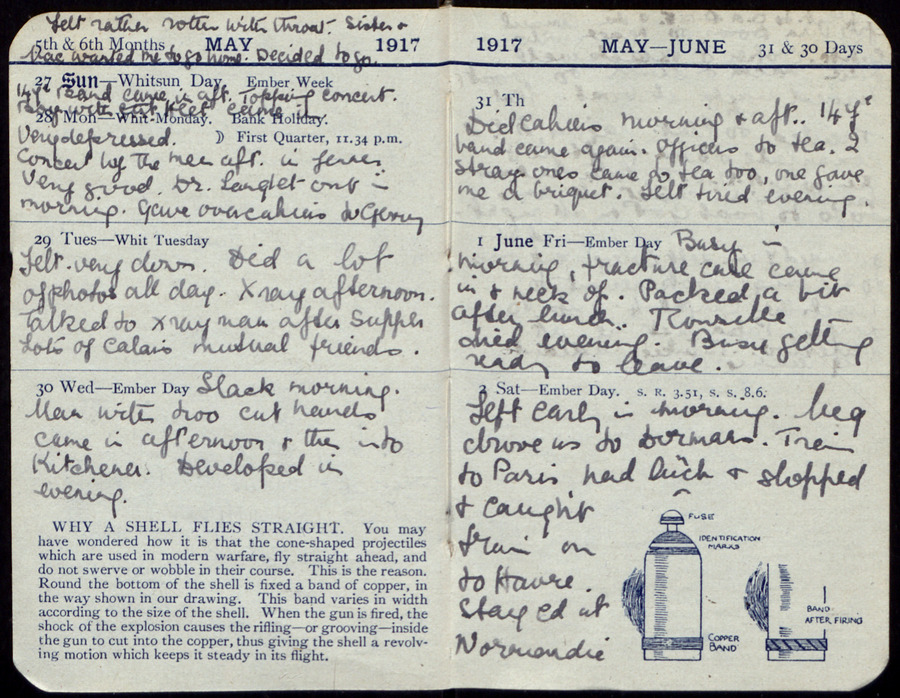 Felt rather rotten with throat. Sister &
5th & 6th Months MAY 1917
Mac wanted me to go home. Decided to go.
27 Sun—Whitsun Day. Ember Week
band came in aft. Topping concert.
28 Mon—Whit-Monday. Bank Holiday.
Very depressed. ☽ First Quarter, 11.34 p.m.
Concert by the men aft. in
Very good. Dr. Langlet out in
morning. Gave over cahiers to
29 Tues—Whit Tuesday
Felt very down. Did a lot
of photos all day. X ray afternoon.
Talked to X ray man after supper
Lots of Calais mutual friends.
30 Wed—Ember Day Slack morning.
Man with two cut hands
came in afternoon & then into
Kitchener. Developed in
evening.
WHY A SHELL FLIES STRAIGHT. You may
have wondered how it is that the cone-shaped projectiles
which are used in modern warfare, fly straight ahead, and
do not swerve or wobble in their course. This is the reason.
Round the bottom of the shell is fixed a band of copper, in
the way shown in our drawing. This band varies in width
according to the size of the shell. When the gun is fired, the
shock of the explosion causes the rifling—or grooving—inside
the gun to cut into the copper, thus giving the shell a revolv-
ing motion which keeps it steady in its flight.
1917 MAY—JUNE 31 & 30 Days
31 Th
Did cahiers morning & aft.. 147e
band came again. Officers to tea. 2
stray ones came to tea too, one gave
me a briquet. Felt tired evening.
1 June Fri—Ember Day Busy in
morning, fracture case came
in & neck of. Packed a bit
after lunch.
died evening. Busy getting
ready to leave.
2 Sat—Ember Day. S. R. 3.51, S. S. 8.6.
Left early in morning. Meg
drove us to Dormans. Train
to Paris had luck & stopped
& caught
train on
to Havre.
Stayed at
Normandie
FUSE
IDENTIFICATION
MARKS
COPPER
BAND
BAND
AFTER FIRING